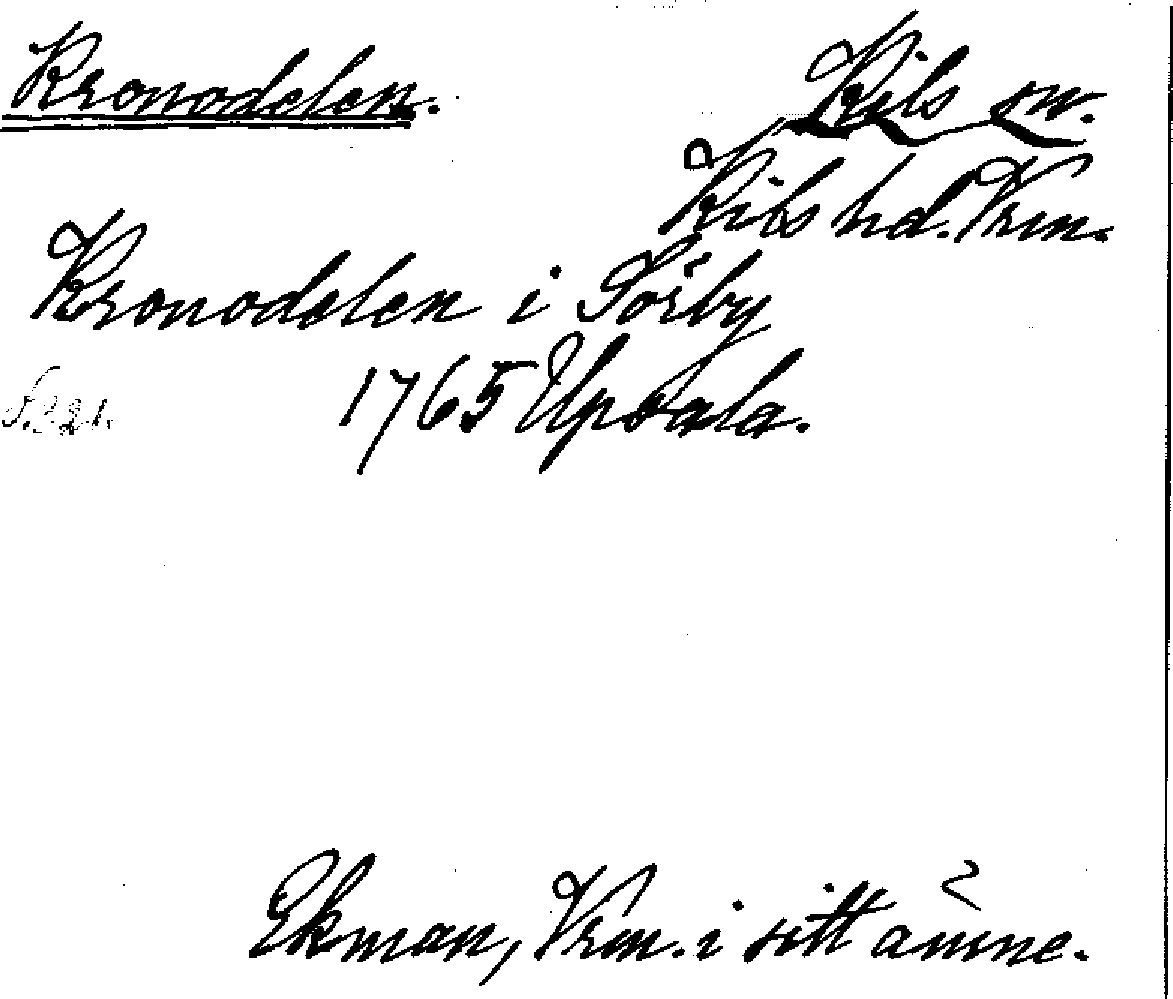 Kronodelen.
Kils sn.
Kils hd. Vrm.
Kronodelen i Sörby
1765 Upsala.
S. 221.
Ekman, Vrm. i sitt ämne.